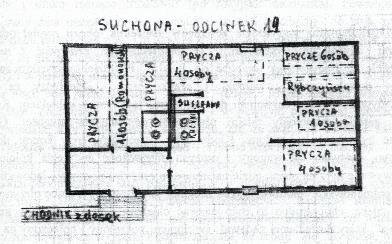 SUCHONA - ODCINEK 19
PRYCZA
11 osób (Romanowski)
PRYCZA
PRYCZA
4 osoby
SUSZARNIA
PRYCZE 6 osób
Rybczyńscy
PRYCZA
1 osoba
PRYCZA
4 osoby
CHODNIK z desek